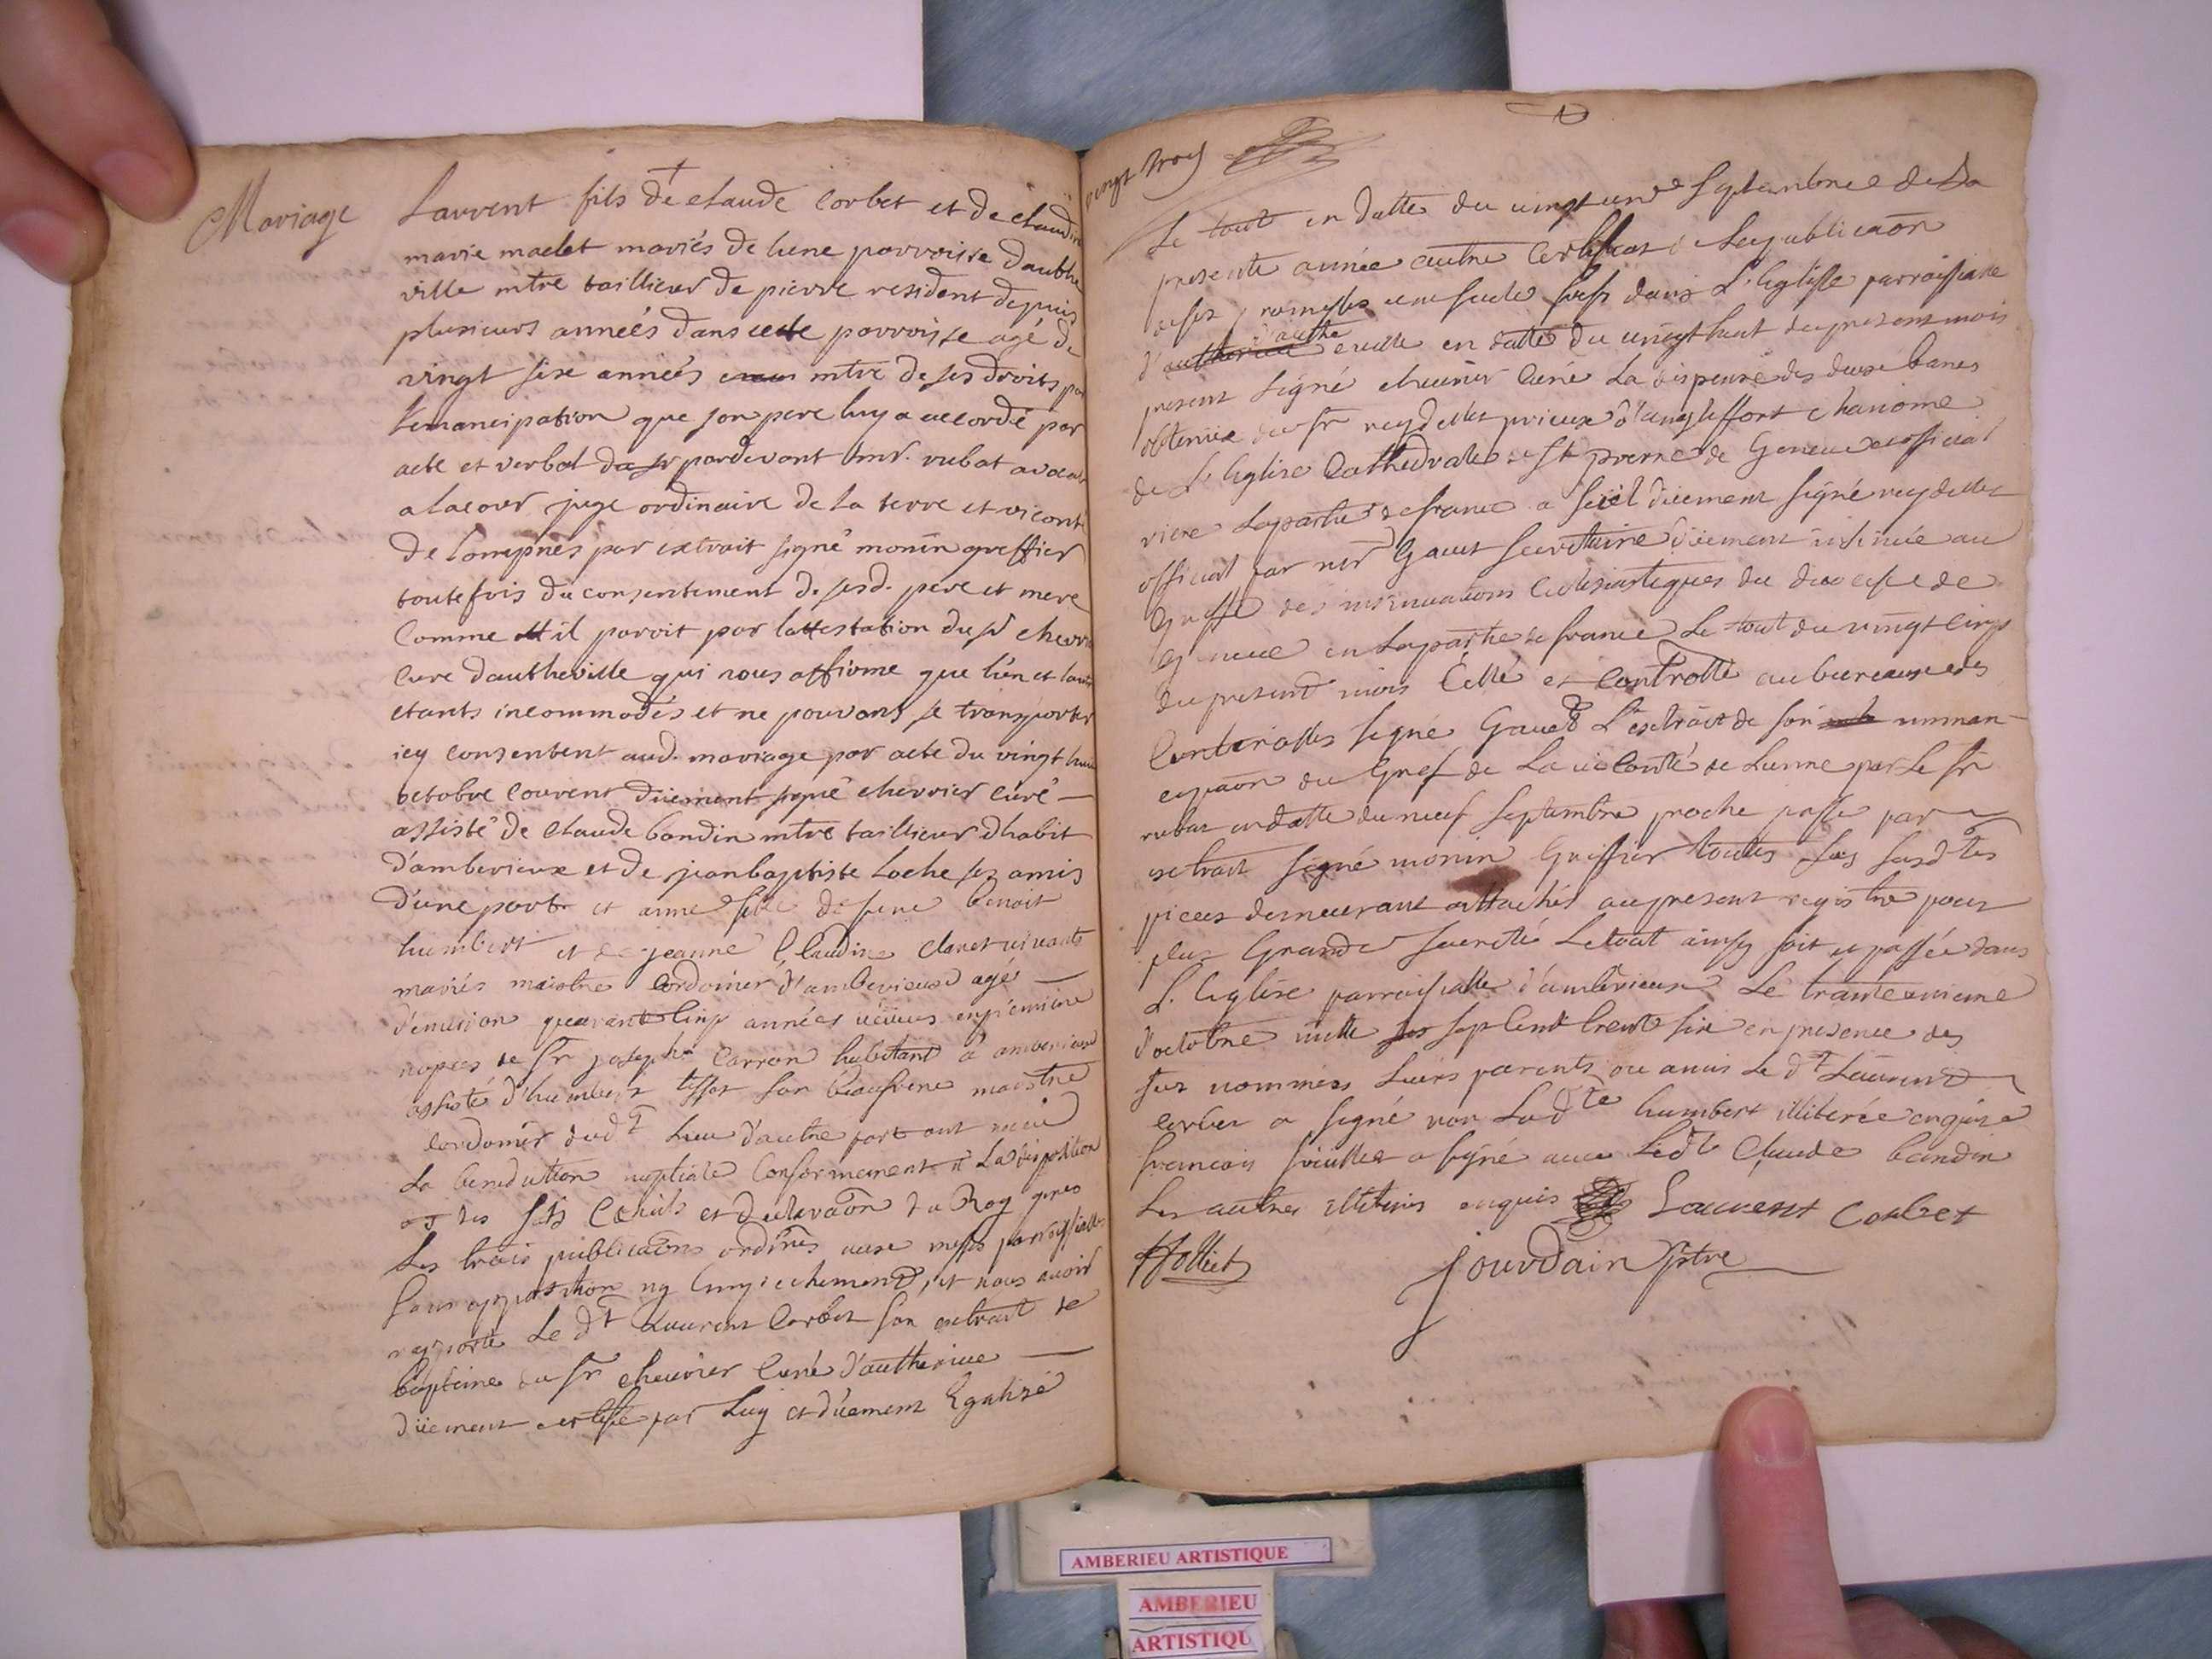 Mariage
Laurent fils de claude Corbet et de claudine
marie maclet mariés de lune parroisse dauthe
ville mtre taillieur de pierre resident depuis
plusieurs années dans cette parroisse agé de
vingt sixe années mtre de ses droits par
lemancipation que son pere luy a accordé par
acte et verbal pardevant mr. rubat avocat
a lacour juge ordinaire de la terre et viconté
de Lompnes par extrait signé monin greffier
toutefois du consentement de sesd. pere et mere
Comme il paroit par lattestation du sr chevrier
Curé dautheville qui nous affirme que lun et lautre
etants incommodés et ne pouvans se transporter
icy consentent aud. mariage par acte du vingt huit
octobre Courent düement signé chevrier Curé
assisté de Claude bondin mtre taillieur dhabit
d'amberieux et de jeanbaptiste Loche ses amis
d'une part et anne fille de fune benoit
humbert et de jeanne Claudine Claret vivants
mariés maistre Cordonier d'amberieux agé
d'enviion quarante Cinq années veuve en premiere
nopces de Sr joseph Carron habitant a amberieux
assisté d'humbert tissot son beaufrere maistre
Cordonier dudt Lieu d'autre part ont receu
La benediction nuptiale Conformement a La disposition
des Sts Canons et declaraon du Roy apres
Les trois publicaons ordres aux messes parroissialles
Sans opposition ny Empechement, et nous avoir
rapporté Le dt Laurent Corbet son extrait de
baptême du Sr chevrier Curé d'autherive
düement certifié par Luy et düement Egalisé
vingt trois
Le tout en datte du vingt un Septembre de La
presente année autre Certificat de La publicaon
de ses promesses une seule fois dans L'Eglise parroissialle
d'authe
en datte du vingt huit du present mois
present signé chevrier Curé La dispense des deux bancs
obtenue du Sr reydellet prieur d'angleffort chanoine
de L'Eglise Cathedrale de St pierre de Geneve et official
La partie de france a seël düement signé reydellet
official par mr Gavet secretaire düement insinuée au
Greffe des insinuations Eclesiastiques du diocese de
Geneve en La partie de france Le tout du vingt Cinq
du present mois Cellé et Controllé au bureaux des
Controlles signé Gavet L'extrait de son eman-
cipaon du Gref de La viconté de Lunne par Le Sr
rubat en datte du neuf Septembre proche passé par
extrait signé monin Greffier toutes Les susdtes
pieces demeurant attachés au present registre pour
plus Grande seureté Le tout ainsy fait et passée dans
L'Eglise parroissialle d'amberieux Le trante unieme
d'octobre mille sept Cent trente six en presence des
sus nommés Leurs parents ou amis Le dt Laurent
Corbet a signé non Ladte humbert illiterée enquise
francois a signé avec Ledt Claude bandin
Les autres illiterés enquis Laurent Corbet
Jourdain ptre
AMBERIEU ARTISTIQUE
AMBERIEU
ARTISTIQU